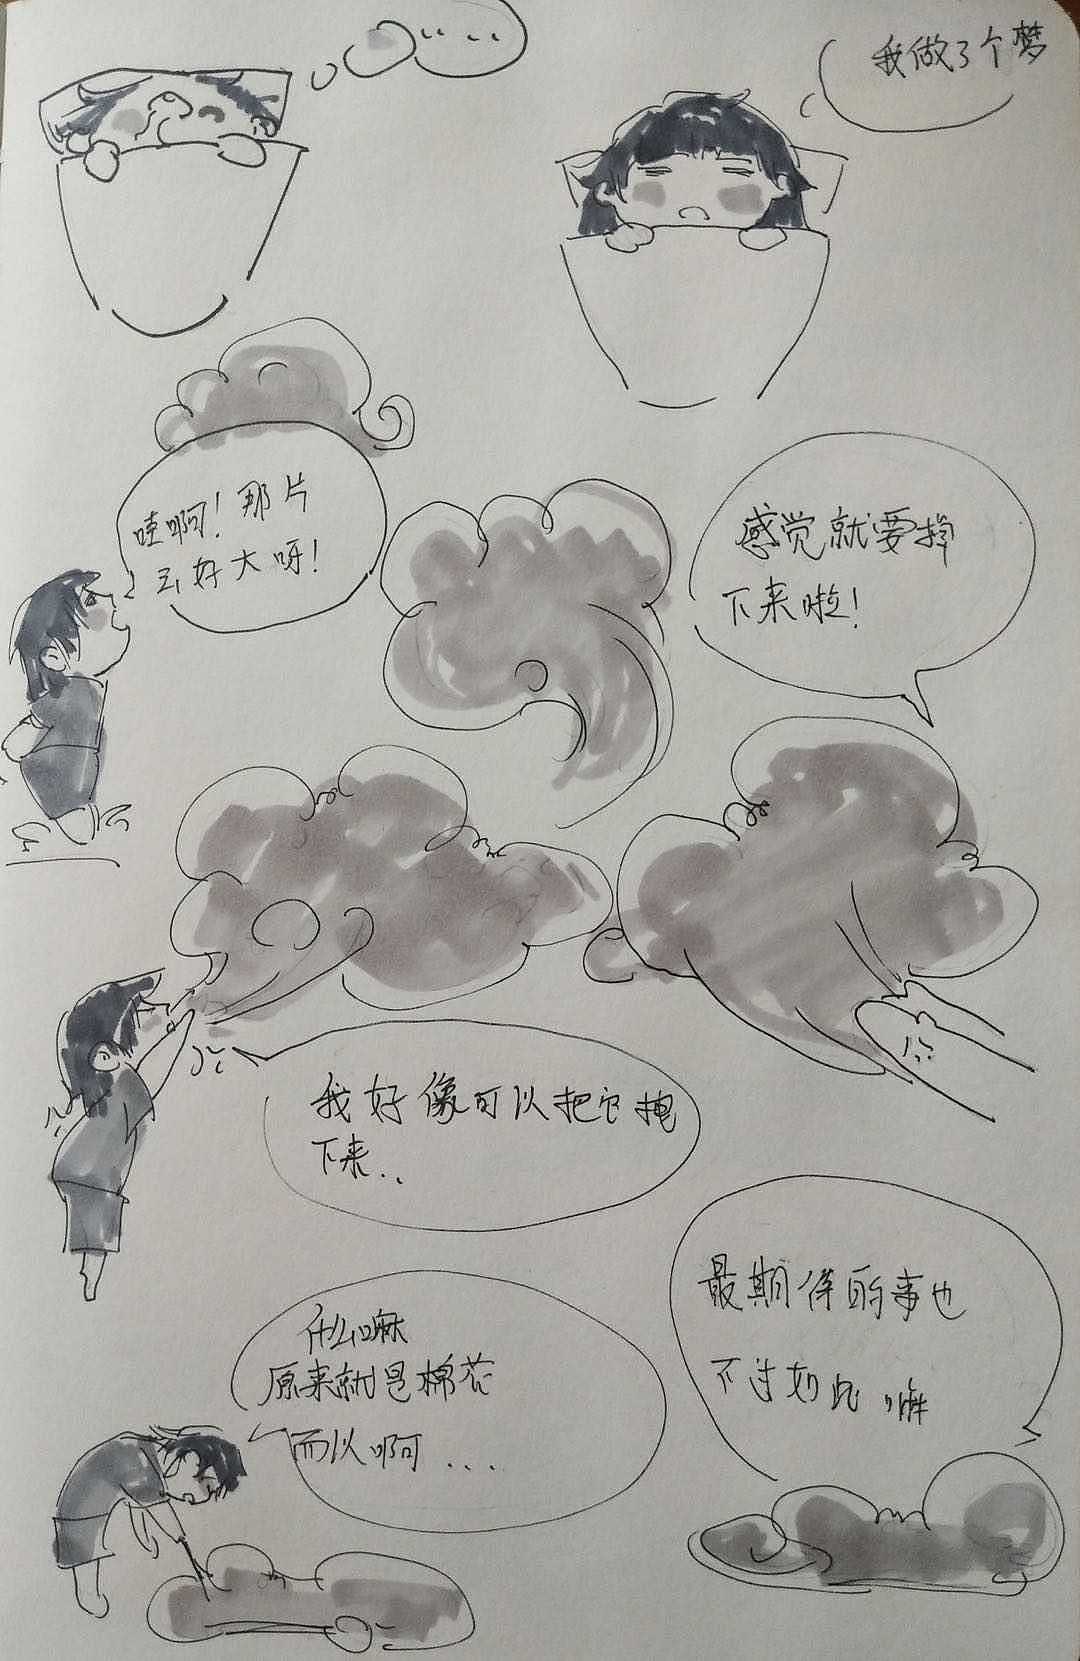 ....
我做了个梦
哇啊！那片
云好大呀！
感觉就要掉
下来啦！
我好像可以把它拽
下来..
什么嘛
原来就是棉花
而以啊...
最期待的事也
不过如此，嘛